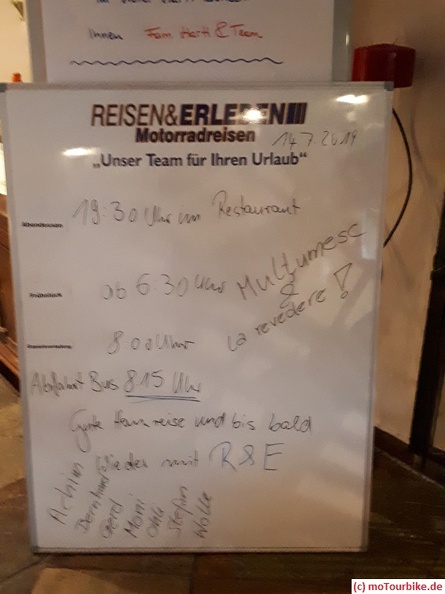 Innen Fam Hartl & Team
REISEN&ERLEBEN
Motorradreisen 14.7.2019
„Unser Team für Ihren Urlaub“
19:30 Uhr im Restaurant
Abendessen
ab 6:30 Uhr Multumesc
&
la revedere!
Frühstück
8 00 Uhr
Abfahrt Bus 8 15 Uhr
Gute Heimreise und bis bald
wieder mit R&E
Achim
Bernhard
Gerd
Moni
Stefan
Wolle
(c) moTourbike.de